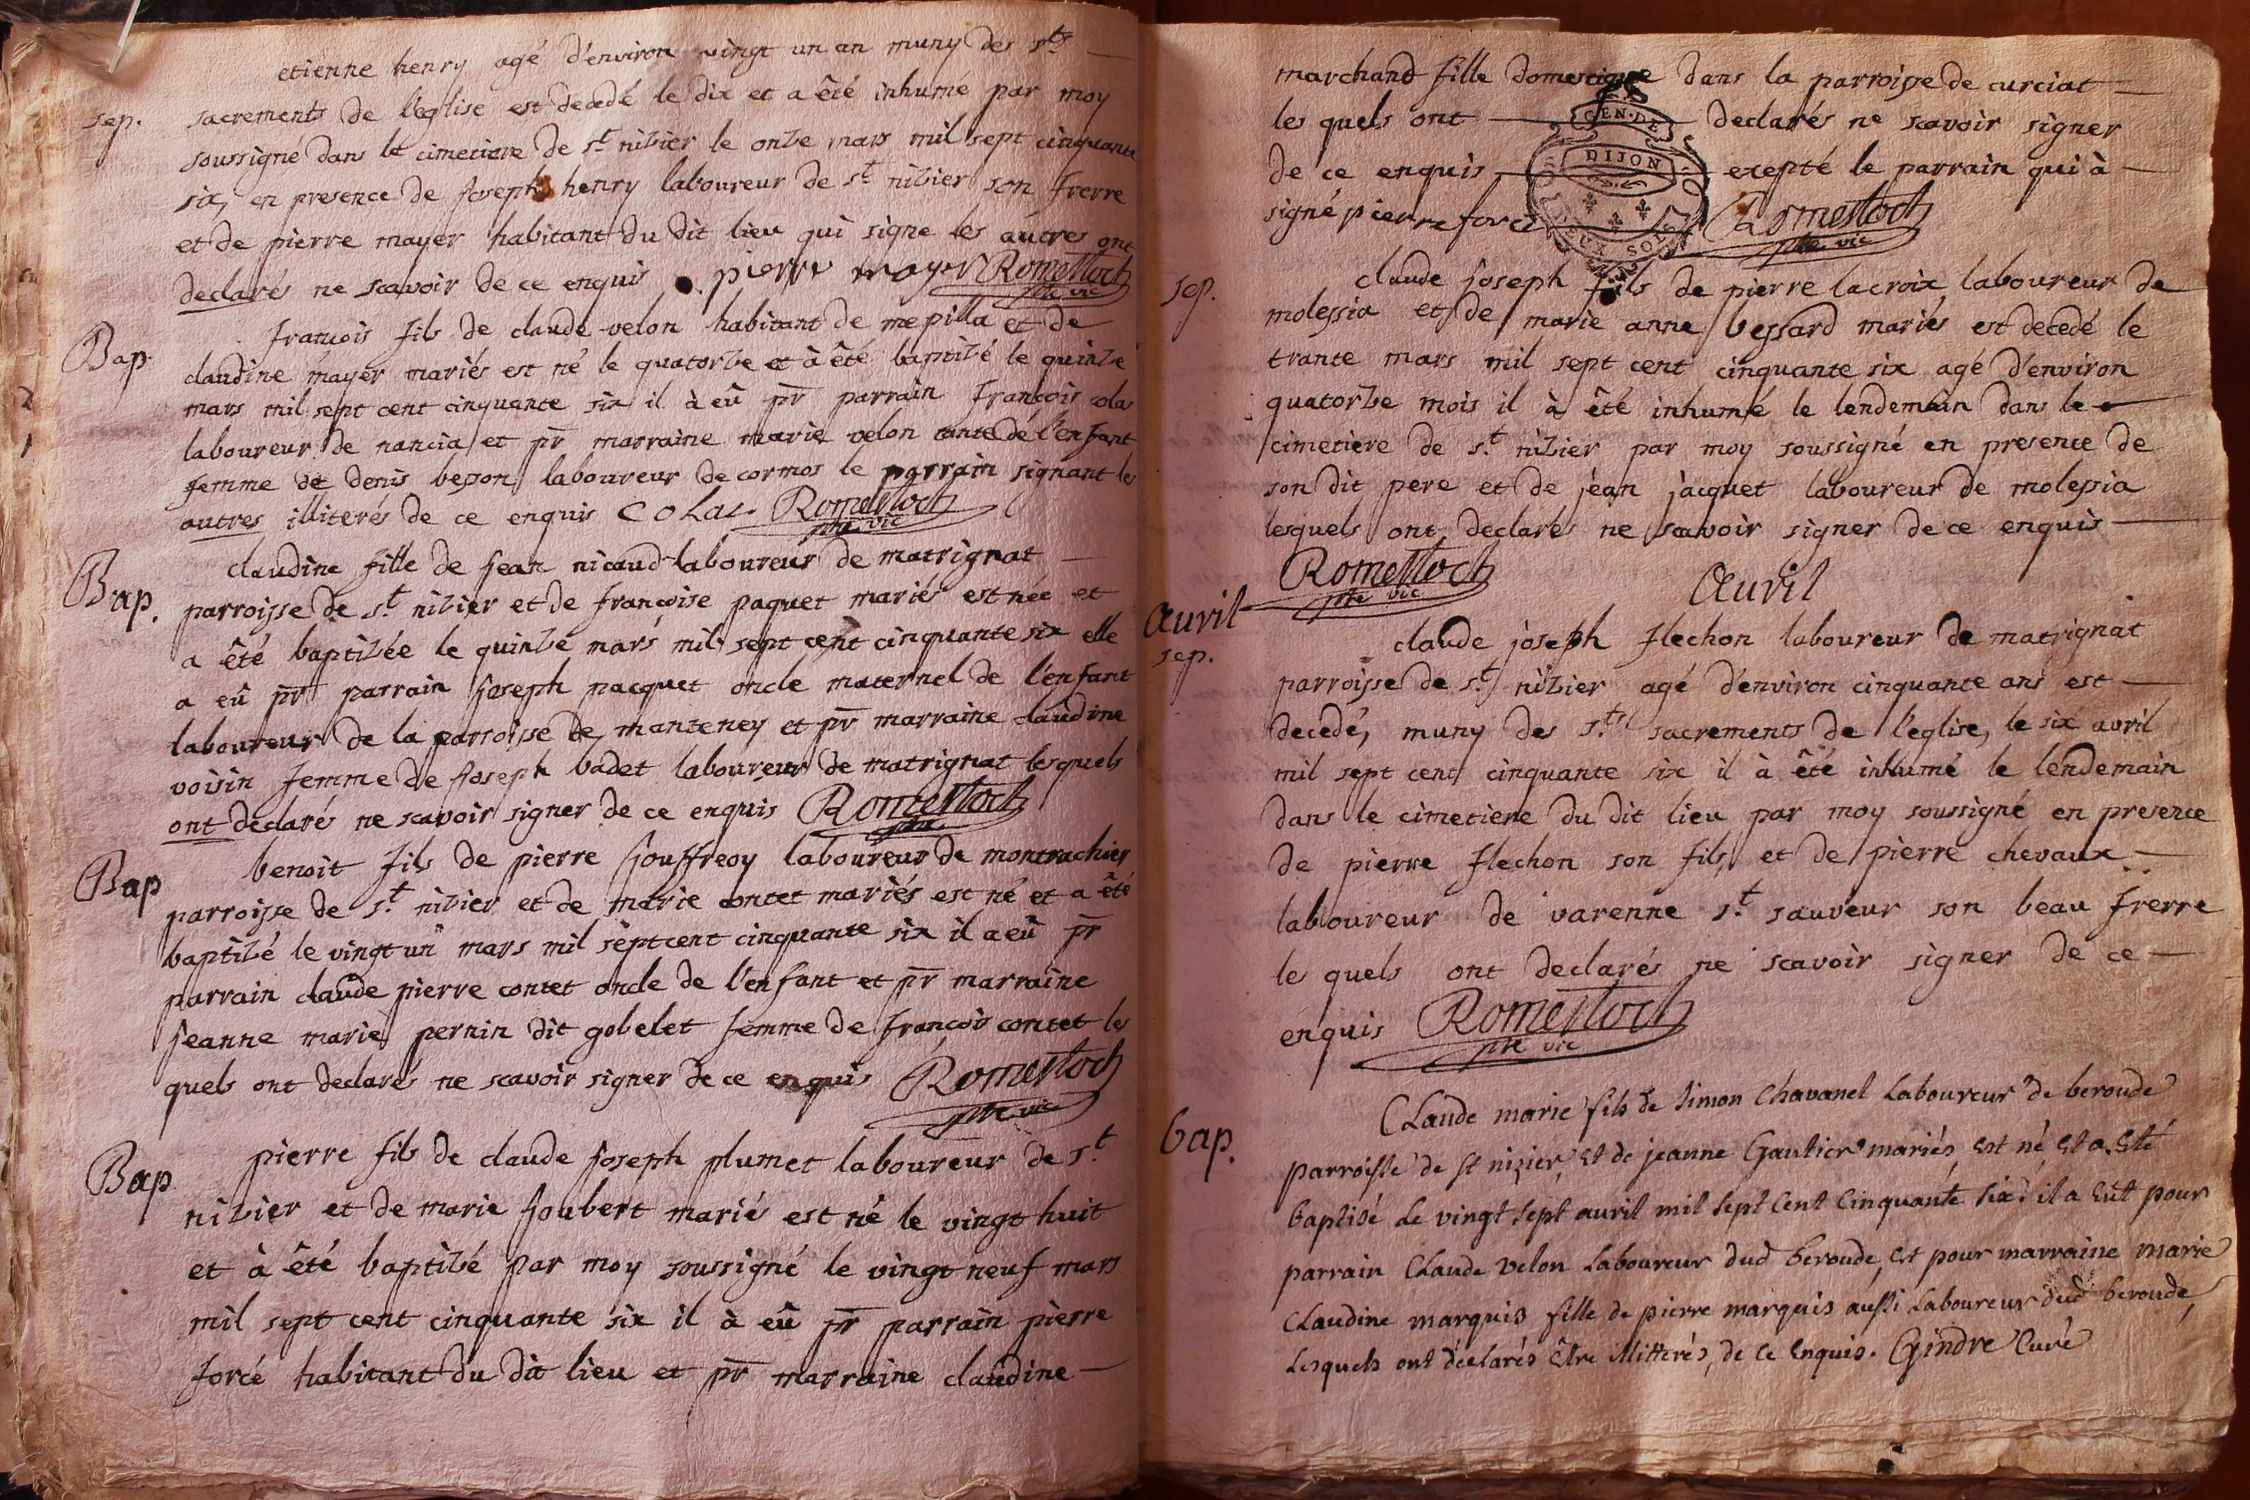 etienne henry agé d'environ vingt un an muny des sts
sep. sacrements de l'eglise est decedé le dix et a êté inhumé par moy
soussigné dans le cimetiere de st nizier le onze mars mil sept cinquante
six, en presence de joseph henry laboureur de st nizier son frerre
et de pierre mayer habitant du dit lieu qui signe les autres ont
declarés ne scavoir de ce enquis pierre mayer Romestoch
ptre vic
Bap. françois fils de claude velon habitant de mepilla et de
claudine mayer mariés est né le quatorze et à êté baptizé le quinze
mars mil sept cent cinquante six il à eû pr parrain françois colas
laboureur de nancia et pr marraine marie velon tante de l'enfant
femme de denis besson laboureur de cormos le parrain signant les
autres illiterés de ce enquis Colas Romestoch
ptre vic
Bap. claudine fille de jean nicaud laboureur de matrignat
parroisse de st nizier et de françoise paquet mariés est née et
a êté baptizée le quinze mars mil sept cent cinquante six elle
a eû pr parrain joseph pacquet oncle maternel de l'enfant
laboureur de la parroisse de manteney et pr marraine claudine
voisin femme de joseph badet laboureur de matrignat lesquels
ont declaré ne scavoir signer de ce enquis Romestoch
ptre
Bap benoit fils de pierre jouffreoy laboureur de montrachier
parroisse de st nizier et de marie contet mariés est né et a êté
baptizé le vingt un mars mil sept cent cinquante six il a eû pr
parrain claude pierre contet oncle de l'enfant et pr marraine
jeanne marie pernin dit gobelet femme de françois contet les
quels ont declarés ne scavoir signer de ce enquis Romestoch
ptre vic
Bap pierre fils de claude joseph plumet laboureur de st
nizier et de marie joubert marié est né le vingt huit
et à êté baptizé par moy soussigné le vingt neuf mars
mil sept cent cinquante six il à eû pr parrain pierre
forcé habitant du dit lieu et pr marraine claudine
marchand fille domestique dans la parroisse de curciat
les quels ont declarés ne scavoir signer
de ce enquis exepté le parrain qui à
signé pierre force Romestoch
ptre vic
GEN. DE
DIJON
DEUX SOLS
sep. claude joseph fils de pierre lacroix laboureur de
molessia et de marie anne bessard mariés est decedé le
trante mars mil sept cent cinquante six agé d'environ
quatorze mois il à êté inhumé le lendemain dans le
cimetiere de st nizier par moy soussigné en presence de
son dit pere et de jean jacquet laboureur de molessia
lesquels ont declarés ne scavoir signer de ce enquis
Romestoch
ptre vic
Avril
Avril
sep. claude joseph flechon laboureur de matrignat
parroisse de st nizier agé d'environ cinquante ans est
decedé, muny des sts sacrements de l'eglise, le six avril
mil sept cent cinquante six il à êté inhumé le lendemain
dans le cimetiere du dit lieu par moy soussigné en presence
de pierre flechon son fils et de pierre chevaux
laboureur de varenne st sauveur son beau frerre
les quels ont declarés ne scavoir signer de ce
enquis Romestoch
ptre vic
bap. Claude marie fils de simon Chavanel Laboureur de beroude
parroisse de st nizier, et de jeanne Gautier mariés, est né et a Eté
baptisé Le vingt sept avril mil sept cent Cinquante six: il a Eût pour
parrain Claude velon Laboureur dud beroude, et pour marraine marie
Claudine marquis fille de pierre marquis aussi Laboureur dud beroude,
Lesquels ont déclarés Être illitterés, de ce Enquis. Gindre Curé